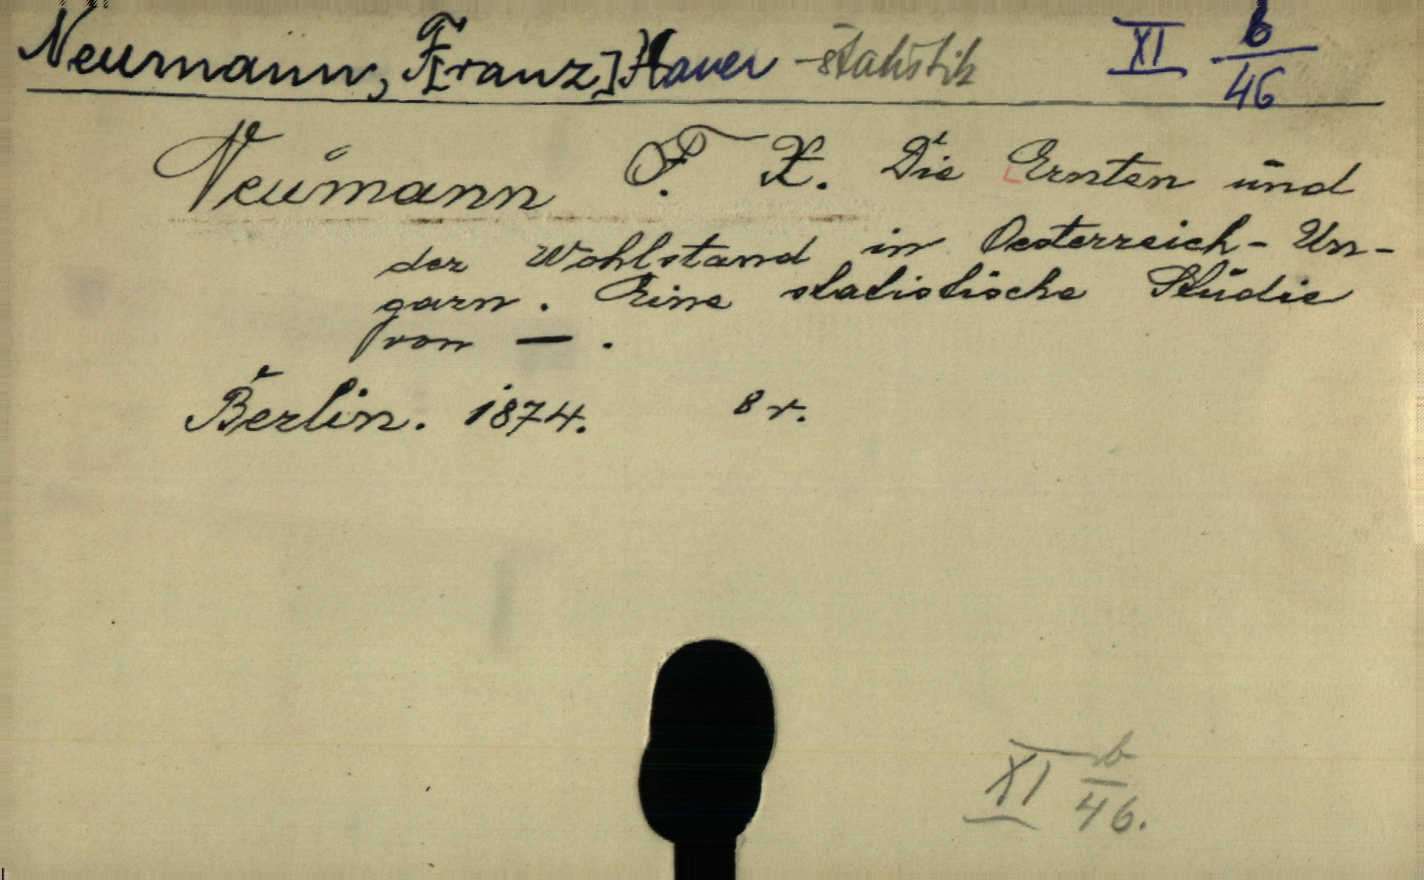 Neumann, F[ranz] Xaver - statistik XI b/46
Neumann F. X. Die Ernten und
der Wohlstand in Oesterreich-Un-
garn. Eine statistische Studie
von — .
Berlin. 1874. 8r.
XI b/46.